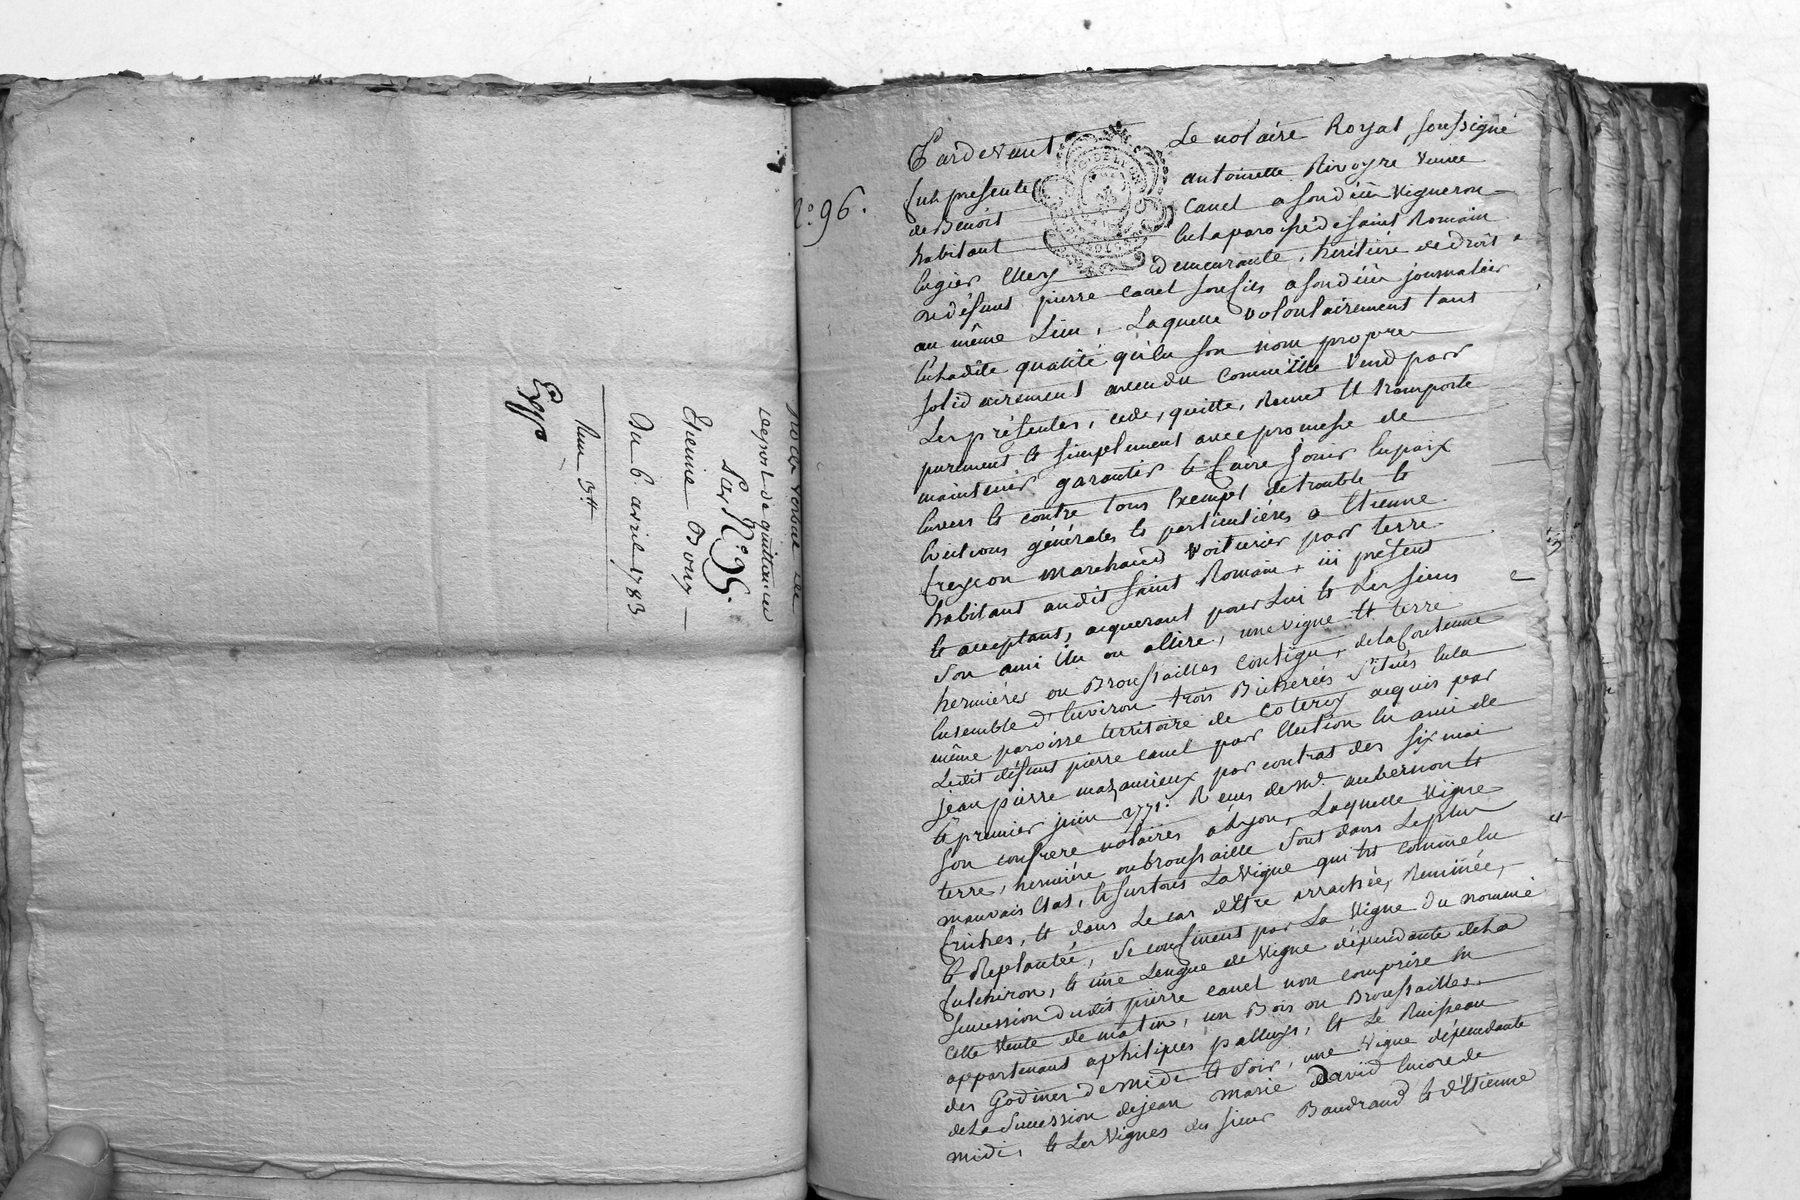 Verbal de
depost de quittances
par
N.° 95.
Etienne Bouy
Du 6. avril 1783
Expé
N.° 96.
Pardevant Le notaire Royal soussigné
fut presente antoinette Rivoyre veuve
de Benoit Canel a son décès vigneron
habitant en la paroisse de saint Romain
en gier elle y demeurante, heritière de droit
de défunt pierre canel son fils a son décès journalier
au même Lieu, Laquelle volontairement tant
en ladite qualité qu'en son nom propre
solidairement a vendu comme elle vend par
Les présentes, cede, quitte, Remet et transporte
purement et simplement avec promesse de
maintenir garantir et faire jouir en paix
envers et contre tous exempt de trouble et
évictions générales et particulières a Etienne
freycon marchand voiturier par terre
habitant audit saint Romain, ici présent
et acceptant, acquerant pour Lui et Les siens
son ami élu ou a élire, une vigne et terre
hermières ou Broussailles contigu, de la contenue
ensemble d'environ trois Bicherées situés en la
même paroisse territoire de Coteroy acquis par
Ledit défunt pierre canel par élection en ami de
jean pierre mazancieux par contrat des six mai
et premier juin 1771. Reçus de Me. aubernon et
son confrere notaires a Lyon, Laquelle vigne
terre, hermière ou broussaille sont dans Le plus
mauvais état, et surtout La vigne qui est comme en
friches, et dans Le cas d'être arrachée, Reminée,
et Replantée, se confinent par La vigne du nommé
futchiron, et une Lengue de vigne dépendante de la
succession dudit pierre canel non comprise en
cette vente de matin, un Bois ou Broussailles
appartenant a philipes palluys, et Le Ruisseau
des Godines de midi et soir, une vigne dépendante
de La succession de jean marie David encore de
midi, et Les vignes des sieur Baudrand et d'Etienne